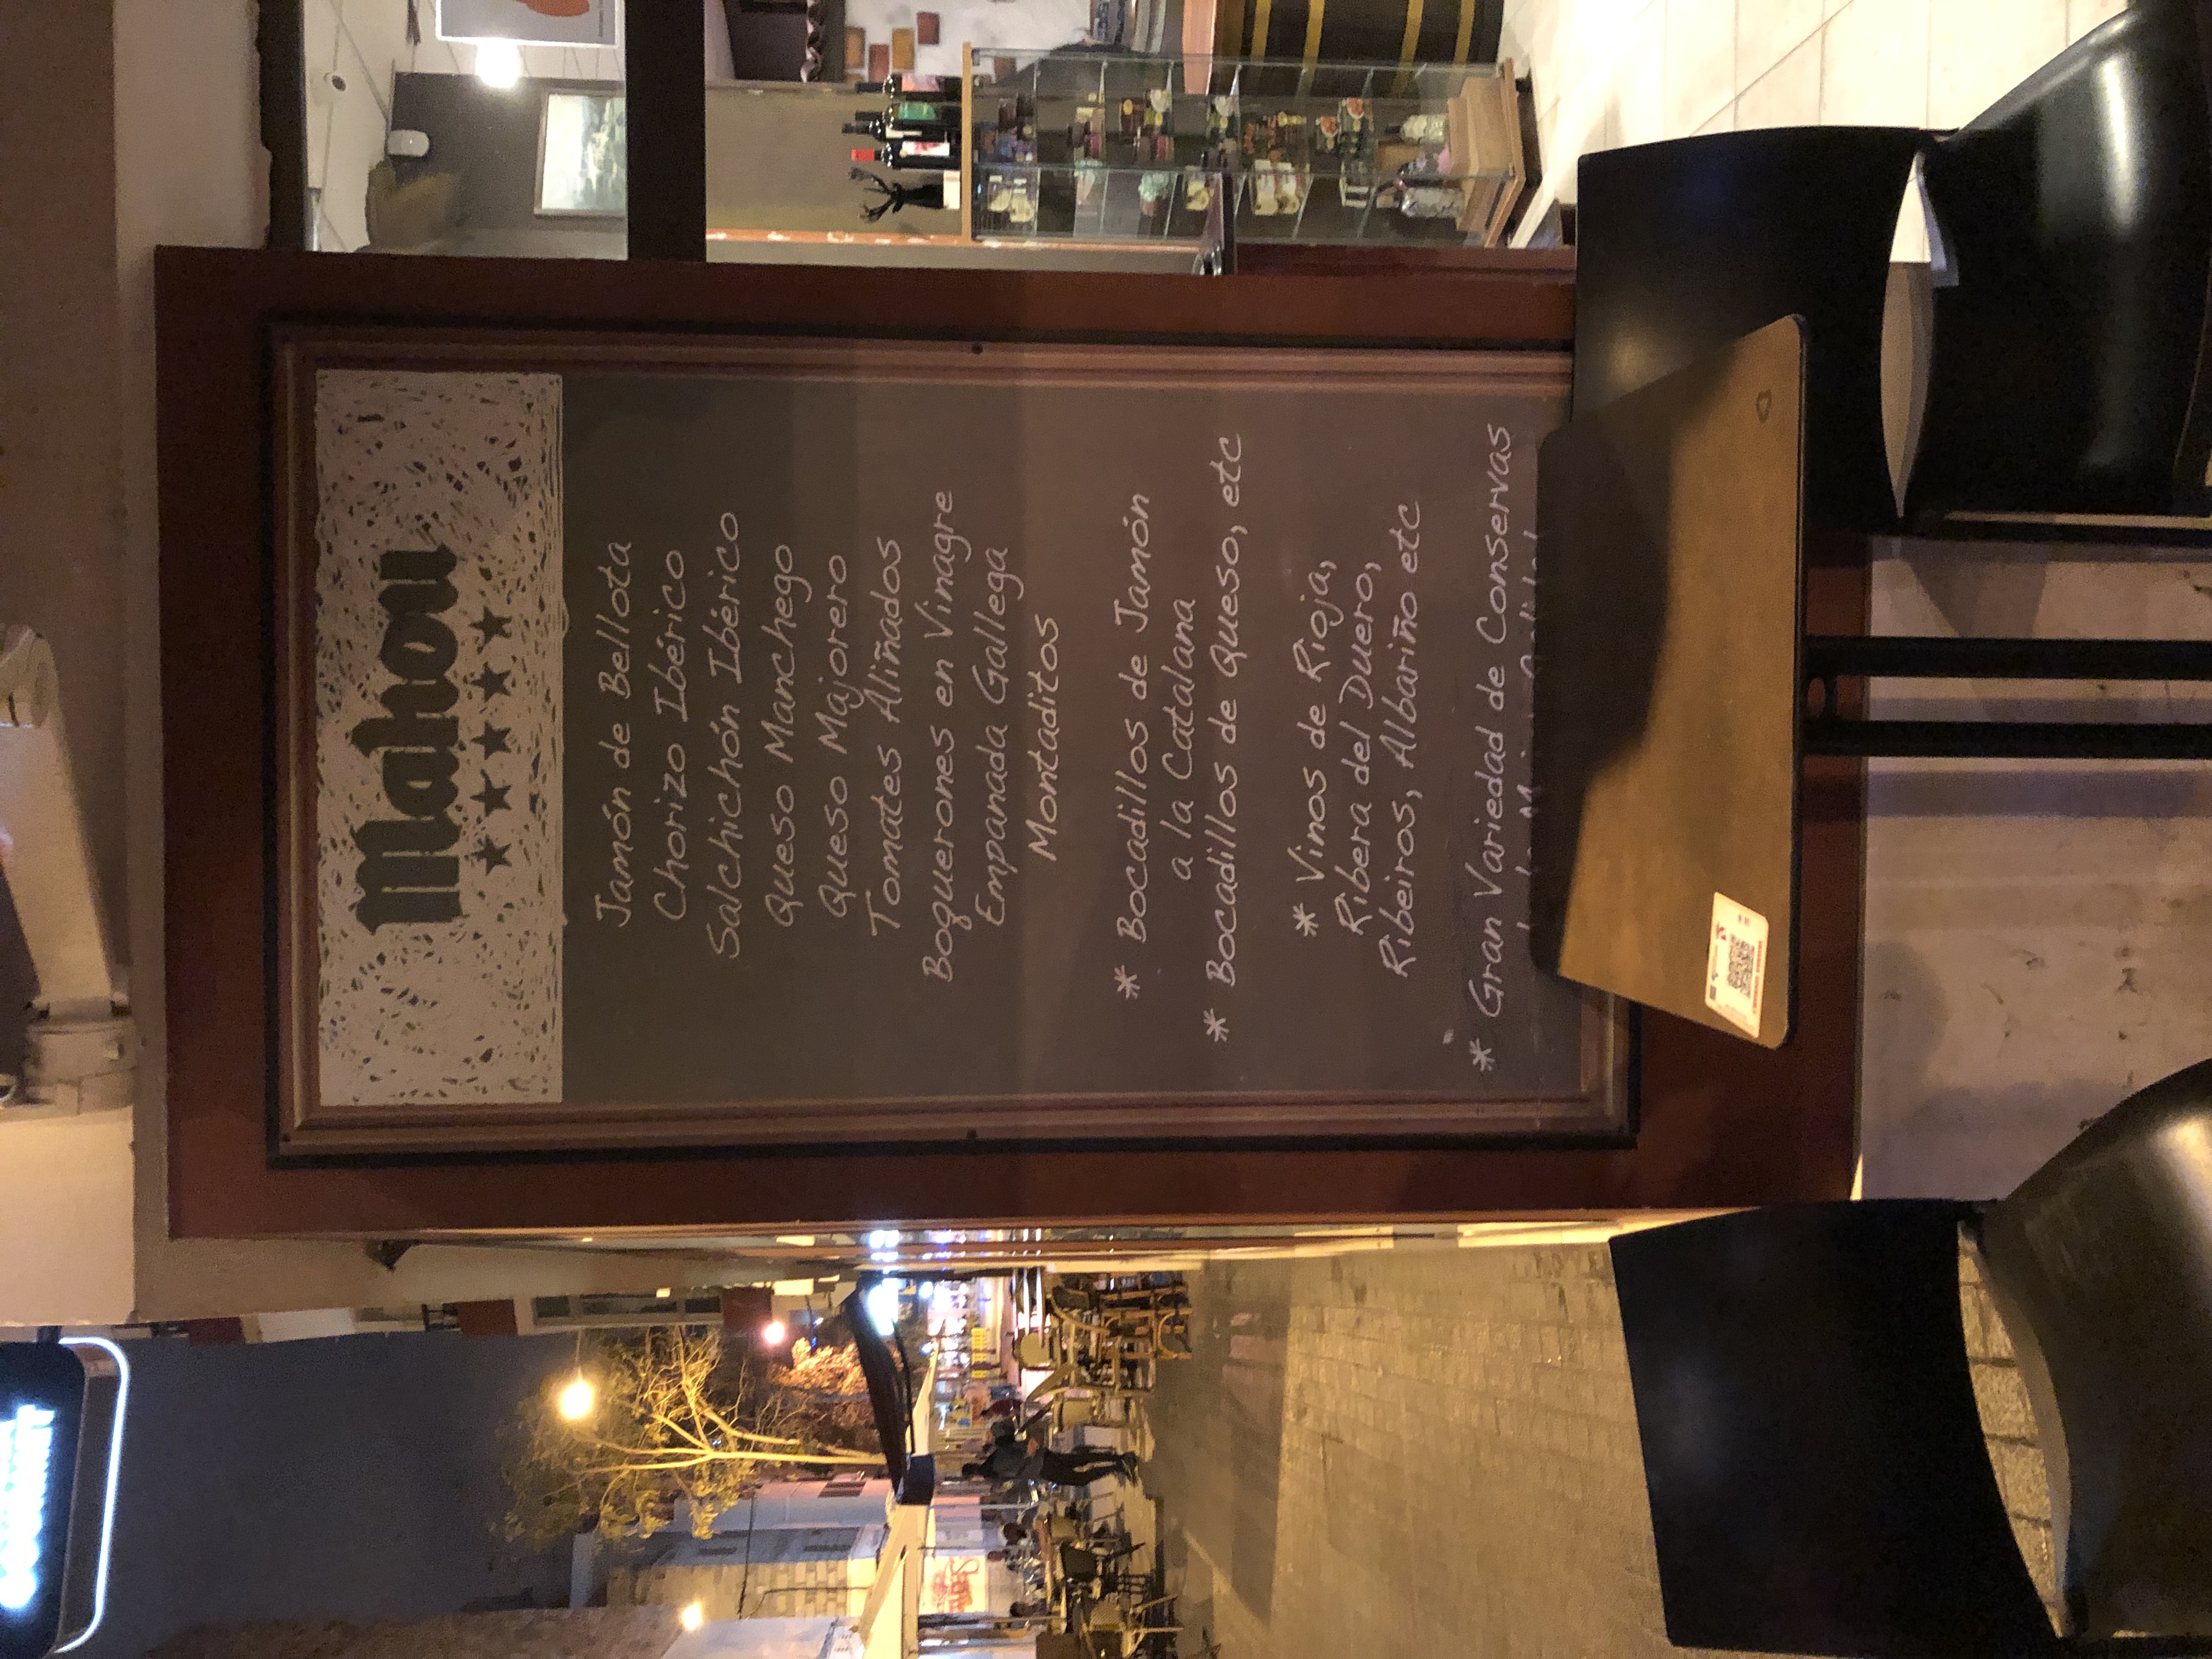 Mahou
Jamón de Bellota
Chorizo Ibérico
Salchichón Ibérico
Queso Manchego
Queso Majorero
Tomates Aliñados
Boquerones en Vinagre
Empanada Gallega
Montaditos
* Bocadillos de Jamón
a la Catalana
* Bocadillos de Queso, etc
* Vinos de Rioja,
Ribera del Duero,
Ribeiros, Albariño etc
* Gran Variedad de Conservas